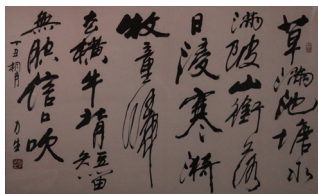 草滿池塘水
滿陂山銜落
日浸寒漪
牧童歸
去橫牛背短笛
無腔信口吹
丁丑桐月 力生